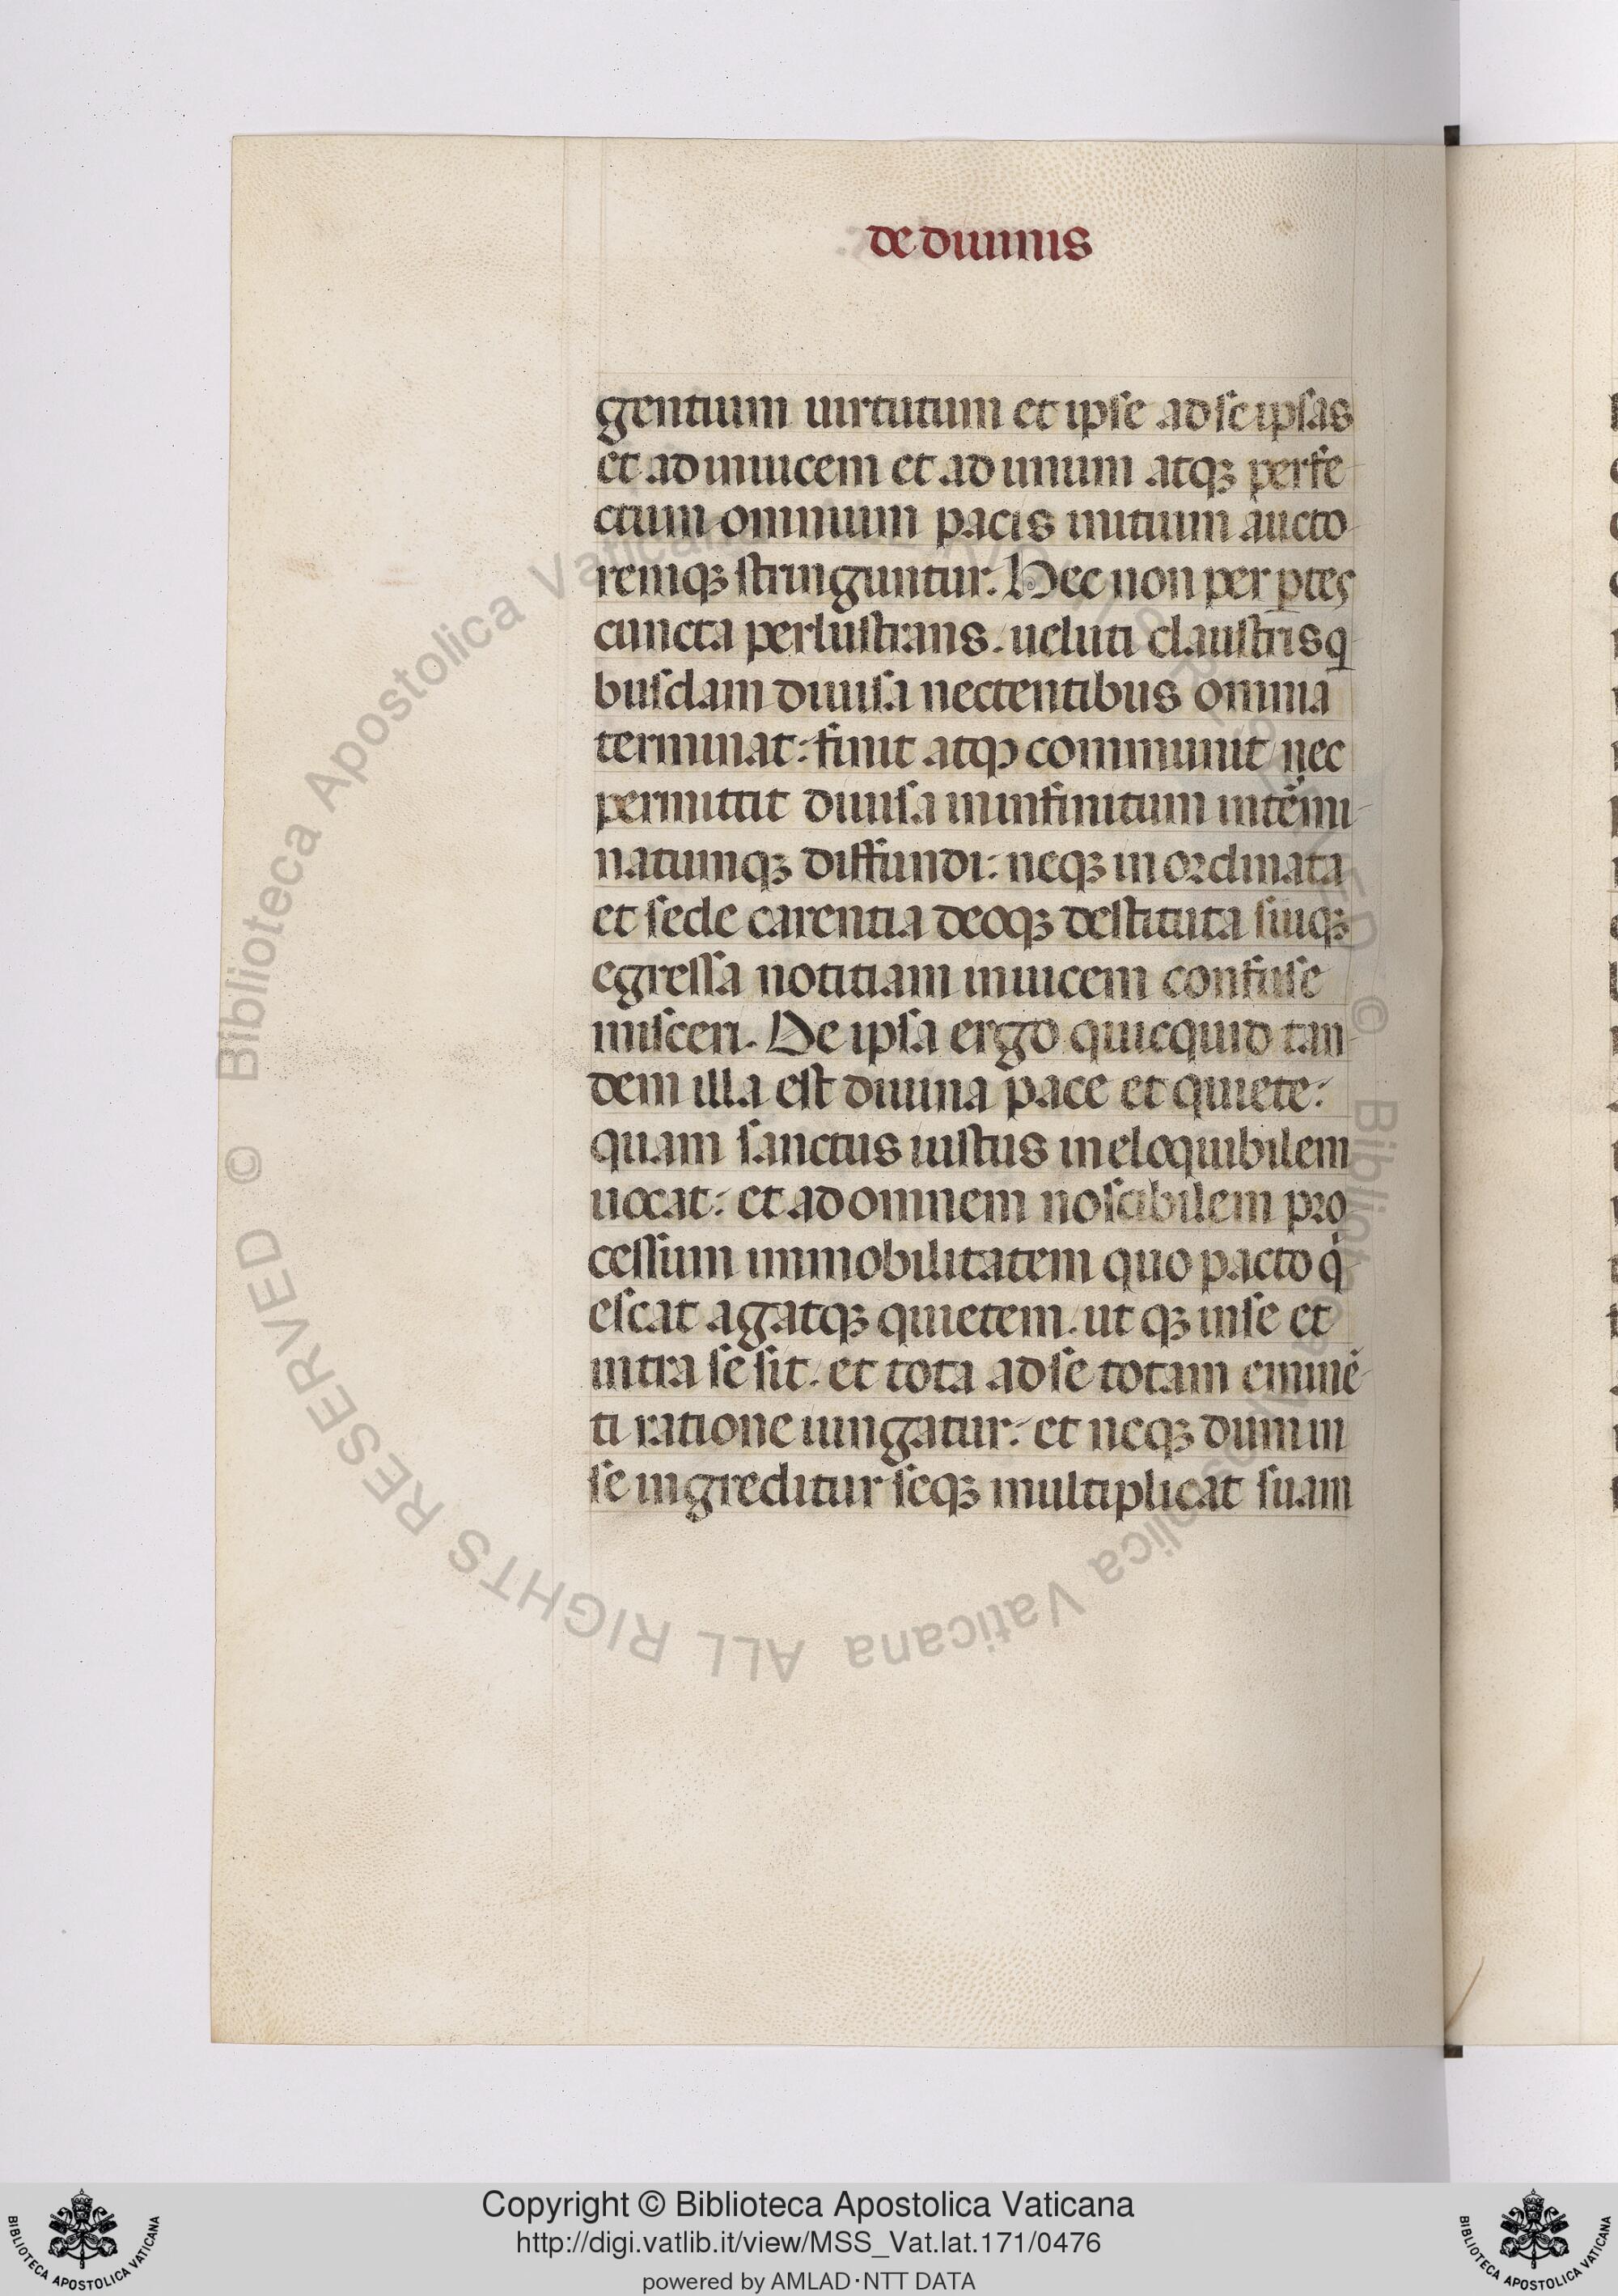 de diuinis
gentium uirtutum et ipse ad se ipsas
et ad inuicem et ad unum atqꝫ perfe-
ctum omnium pacis initium aucto-
remqꝫ stringuntur. Hec non per ꝑtes
cuncta perlustrans. ueluti claustris q-
busdam diuisa nectentibus omnia
terminat: finit atqꝫ communit nec
permittit diuisa in infinitum intermi-
natumqꝫ diffundi: neqꝫ inordinata
et sede carentia deoqꝫ destituta suiqꝫ
egressa notitiam inuicem confuse
misceri. De ipsa ergo quicquid tan-
dem illa est diuina pace et quiete:
quam sanctus iustus ineloquibilem
uocat: et ad omnem noscibilem pro
cessium immobilitatem quo pacto q-
escat agatqꝫ quietem. ut qꝫ in se et
intra se sit. et tota ad se totam eminē-
ti ratione iungatur: et neqꝫ dum in
se ingreditur seqꝫ multiplicat suam
© Biblioteca Apostolica Vaticana ALL RIGHTS RESERVED
© Biblioteca Apostolica Vaticana ALL RIGHTS RESERVED
Copyright © Biblioteca Apostolica Vaticana
http://digi.vatlib.it/view/MSS_Vat.lat.171/0476
powered by AMLAD·NTT DATA
BIBLIOTECA APOSTOLICA VATICANA
BIBLIOTECA APOSTOLICA VATICANA